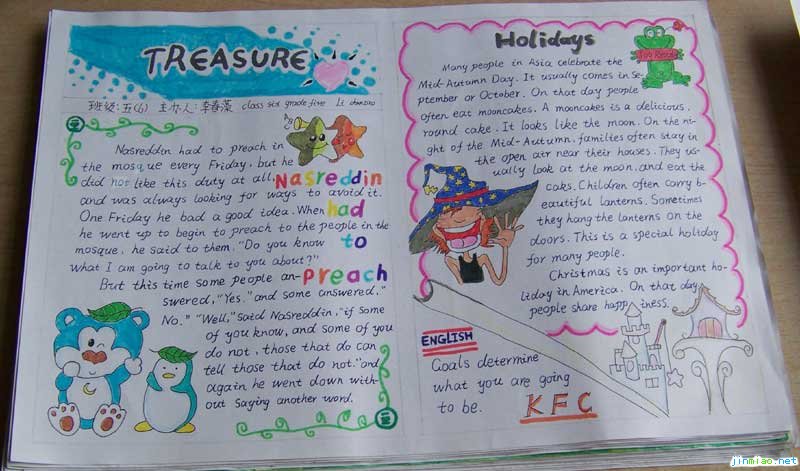 TREASURE
班级:五(6) 主办人:李春藻 class six grade five
ABC
Nasreddin had to preach in
the mosque every Friday, but he
did not like this duty at all,
and was always looking for ways to avoid it.
One Friday he bad a good idea. When
he went up to begin to preach to the people in the
mosque, he said to them, "Do you know
what I am going to talk to you about?"
But this time some people an-
swered, "Yes," and some answered, "
No." "Well," said Nasreddin, "if some
of you know, and some of you
do not, those that do can
tell those that do not." and
again he went down with-
out saying another word.
Nasreddin
had
to
preach
Holidays
Many people in Asia celebrate the
Mid-Autumn Day. It usually comes in Se-
ptember or October. On that day people
often eat mooncakes. A mooncakes is a delicious,
round cake. It looks like the moon. On the ni-
ght of the Mid-Autumn, families often stay in
the open air near their houses. They us-
ually look at the moon, and eat the
cakes. Children often carry b-
eautiful lanterns. Sometimes
they hang the lanterns on the
doors. This is a special holiday
for many people.
Christmas is an important ho-
liday in America. On that day
people share happiness.
ENGLISH
Goals determine
what you are going
to be.
KFC
jinmiao.net